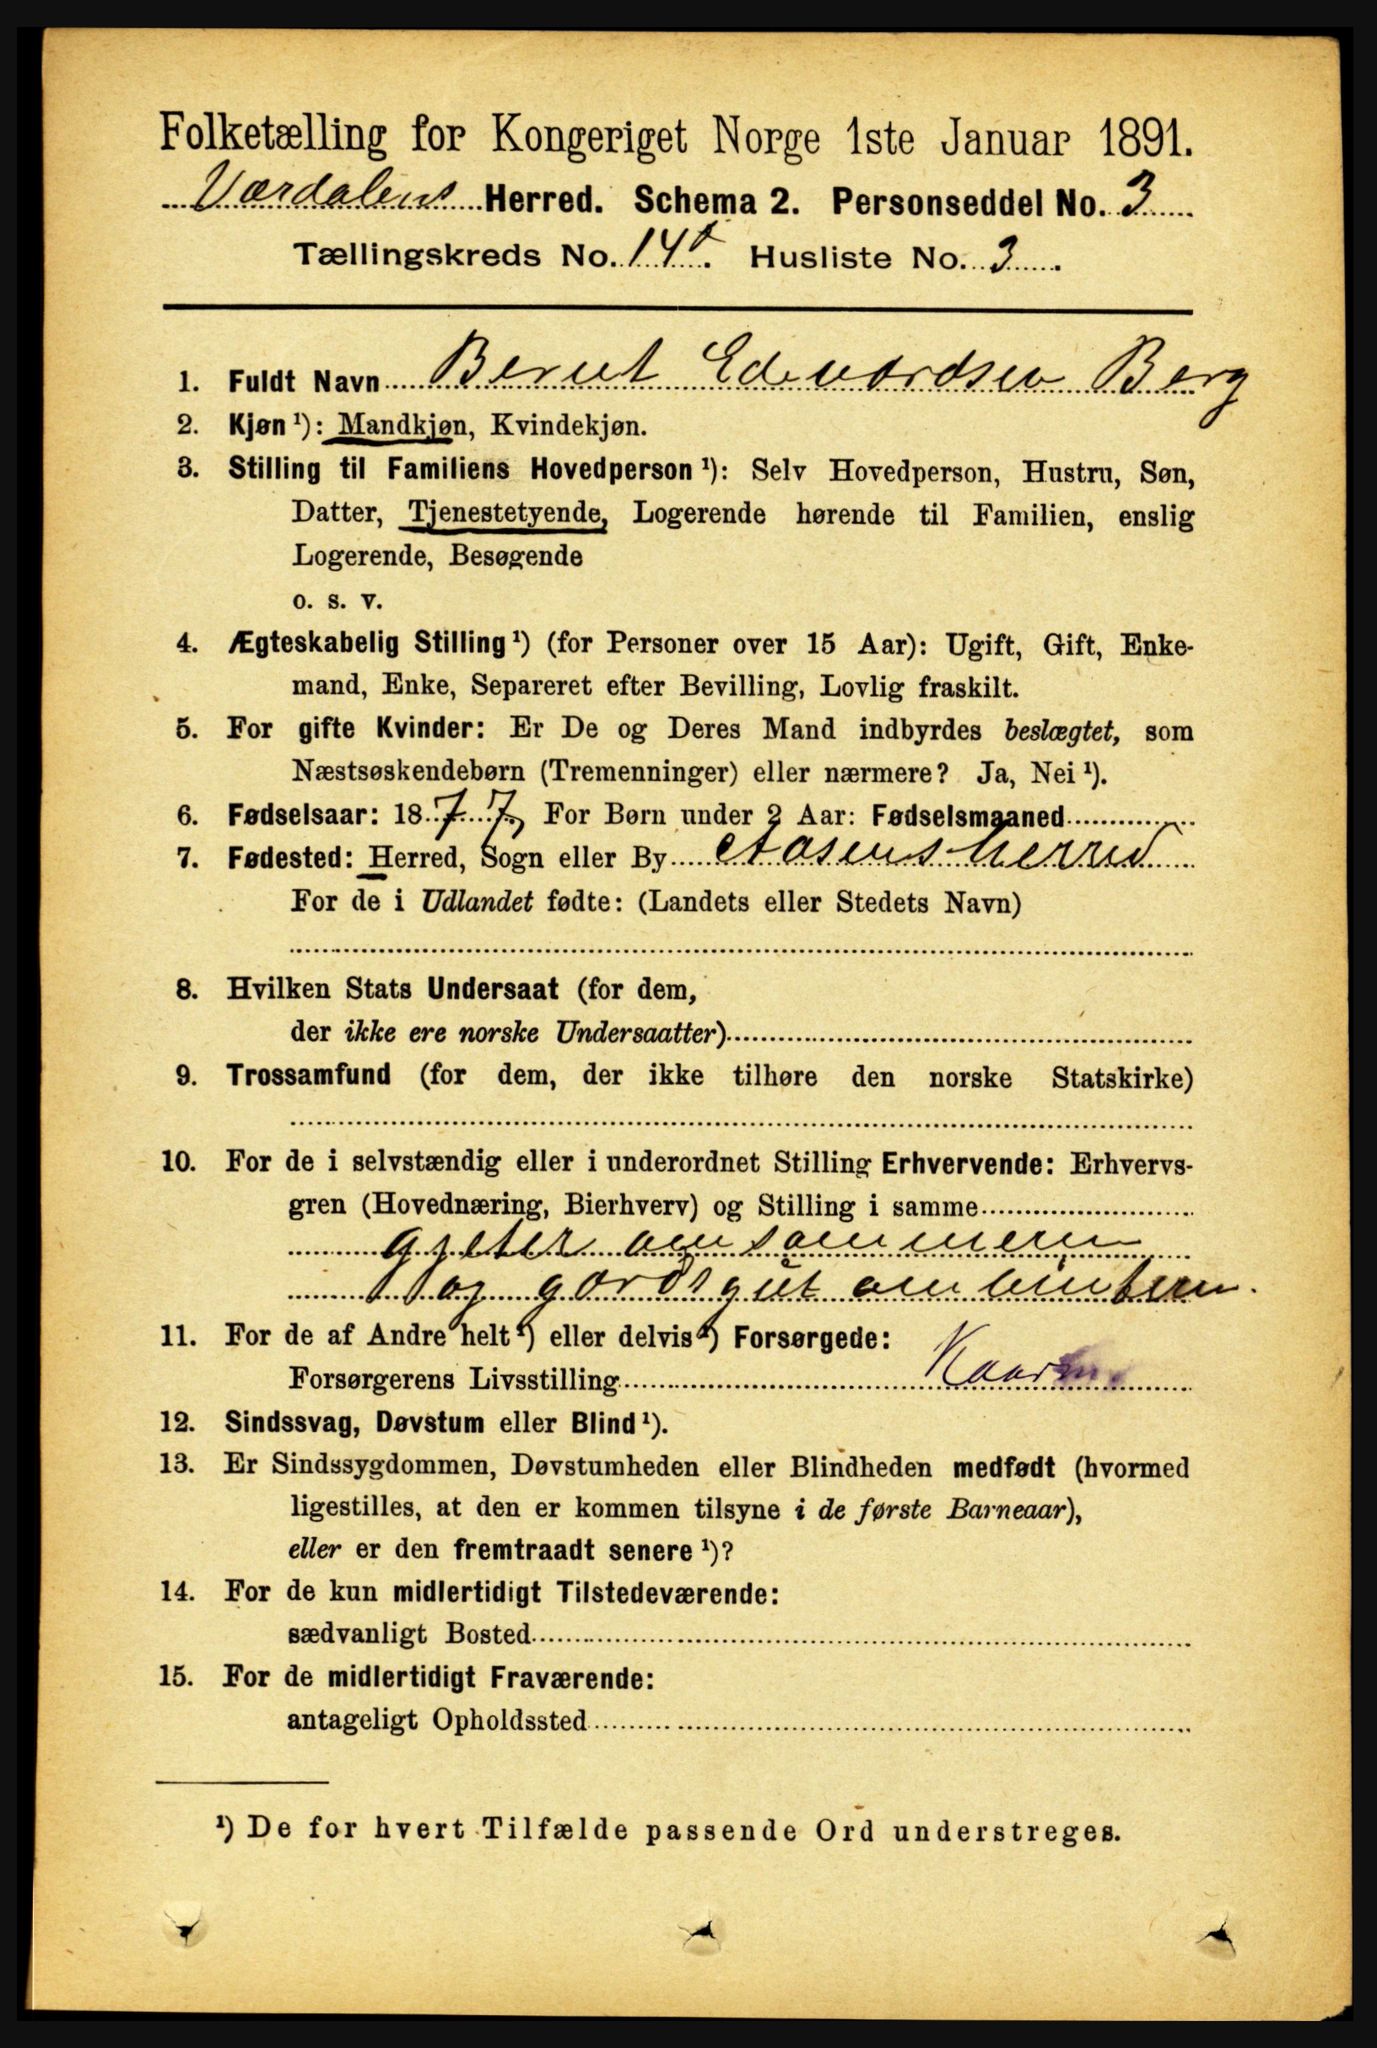 Folketælling for Kongeriget Norge 1ste Januar 1891.
Værdalens Herred. Schema 2. Personseddel No. 3
Tællingskreds No. 14 Husliste No. 3
1. Fuldt Navn Bernt Edevardsen Berg
2. Kjøn ¹): Mandkjøn, Kvindekjøn.
3. Stilling til Familiens Hovedperson ¹): Selv Hovedperson, Hustru, Søn,
Datter, Tjenestetyende, Logerende hørende til Familien, enslig
Logerende, Besøgende
o. s. v.
4. Ægteskabelig Stilling ¹) (for Personer over 15 Aar): Ugift, Gift, Enke-
mand, Enke, Separeret efter Bevilling, Lovlig fraskilt.
5. For gifte Kvinder: Er De og Deres Mand indbyrdes beslægtet, som
Næstsøskendebørn (Tremenninger) eller nærmere? Ja, Nei ¹).
6. Fødselsaar: 1877, For Børn under 2 Aar: Fødselsmaaned
7. Fødested: Herred, Sogn eller By Aasens Herred
For de i Udlandet fødte: (Landets eller Stedets Navn)
8. Hvilken Stats Undersaat (for dem,
der ikke ere norske Undersaatter)
9. Trossamfund (for dem, der ikke tilhøre den norske Statskirke)
10. For de i selvstændig eller i underordnet Stilling Erhvervende: Erhvervs-
gren (Hovednæring, Bierhverv) og Stilling i samme
gjeter om sommeren
og gårdsgut om vinteren.
11. For de af Andre helt ¹) eller delvis ¹) Forsørgede:
Forsørgerens Livsstilling
12. Sindssvag, Døvstum eller Blind ¹).
13. Er Sindssygdommen, Døvstumheden eller Blindheden medfødt (hvormed
ligestilles, at den er kommen tilsyne i de første Barneaar),
eller er den fremtraadt senere ¹)?
14. For de kun midlertidigt Tilstedeværende:
sædvanligt Bosted
15. For de midlertidigt Fraværende:
antageligt Opholdssted
¹) De for hvert Tilfælde passende Ord understreges.